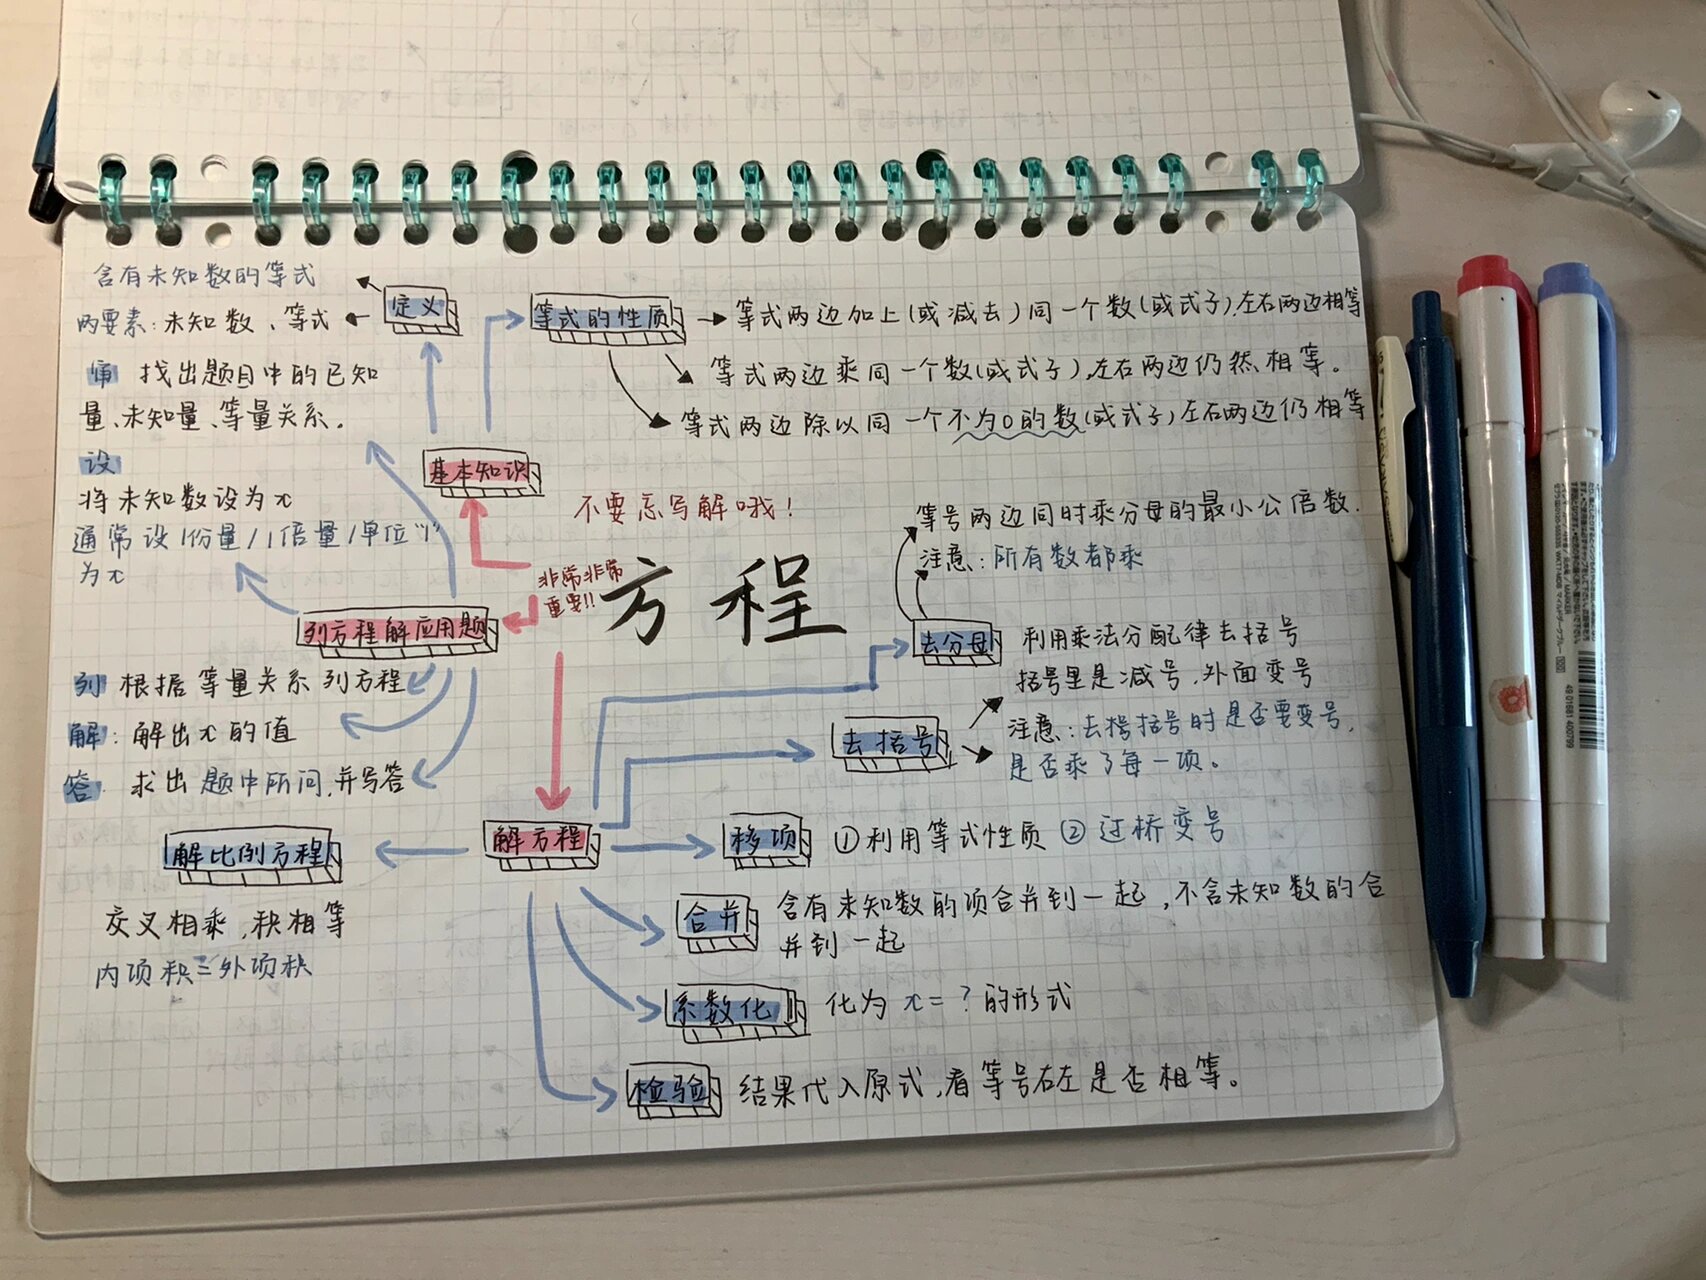 含有未知数的等式
两要素:未知数、等式
定义
等式的性质
等式两边加上(或减去)同一个数(或式子),左右两边相等
等式两边乘同一个数(或式子),左右两边仍然相等。
等式两边除以同一个不为0的数(或式子)左右两边仍相等
审 找出题目中的已知
量、未知量、等量关系。
设
将未知数设为x
通常设1份量/1倍量/单位"1"
为x
基本知识
不要忘写解哦!
非常非常
重要!!
方程
列方程解应用题
列 根据等量关系列方程
解:解出x的值
答:求出题中所问,并写答
等号两边同时乘分母的最小公倍数.
注意:所有数都乘
去分母
利用乘法分配律去括号
括号里是减号,外面变号
去括号
注意:去括号时是否要变号,
是否乘了每一项。
解方程
移项
①利用等式性质 ②过桥变号
解比例方程
交叉相乘,积相等
内项积=外项积
合并
含有未知数的项合并到一起,不含未知数的合
并到一起
系数化1
化为x=?的形式
检验
结果代入原式,看等号右左是否相等。
49 01681 400799